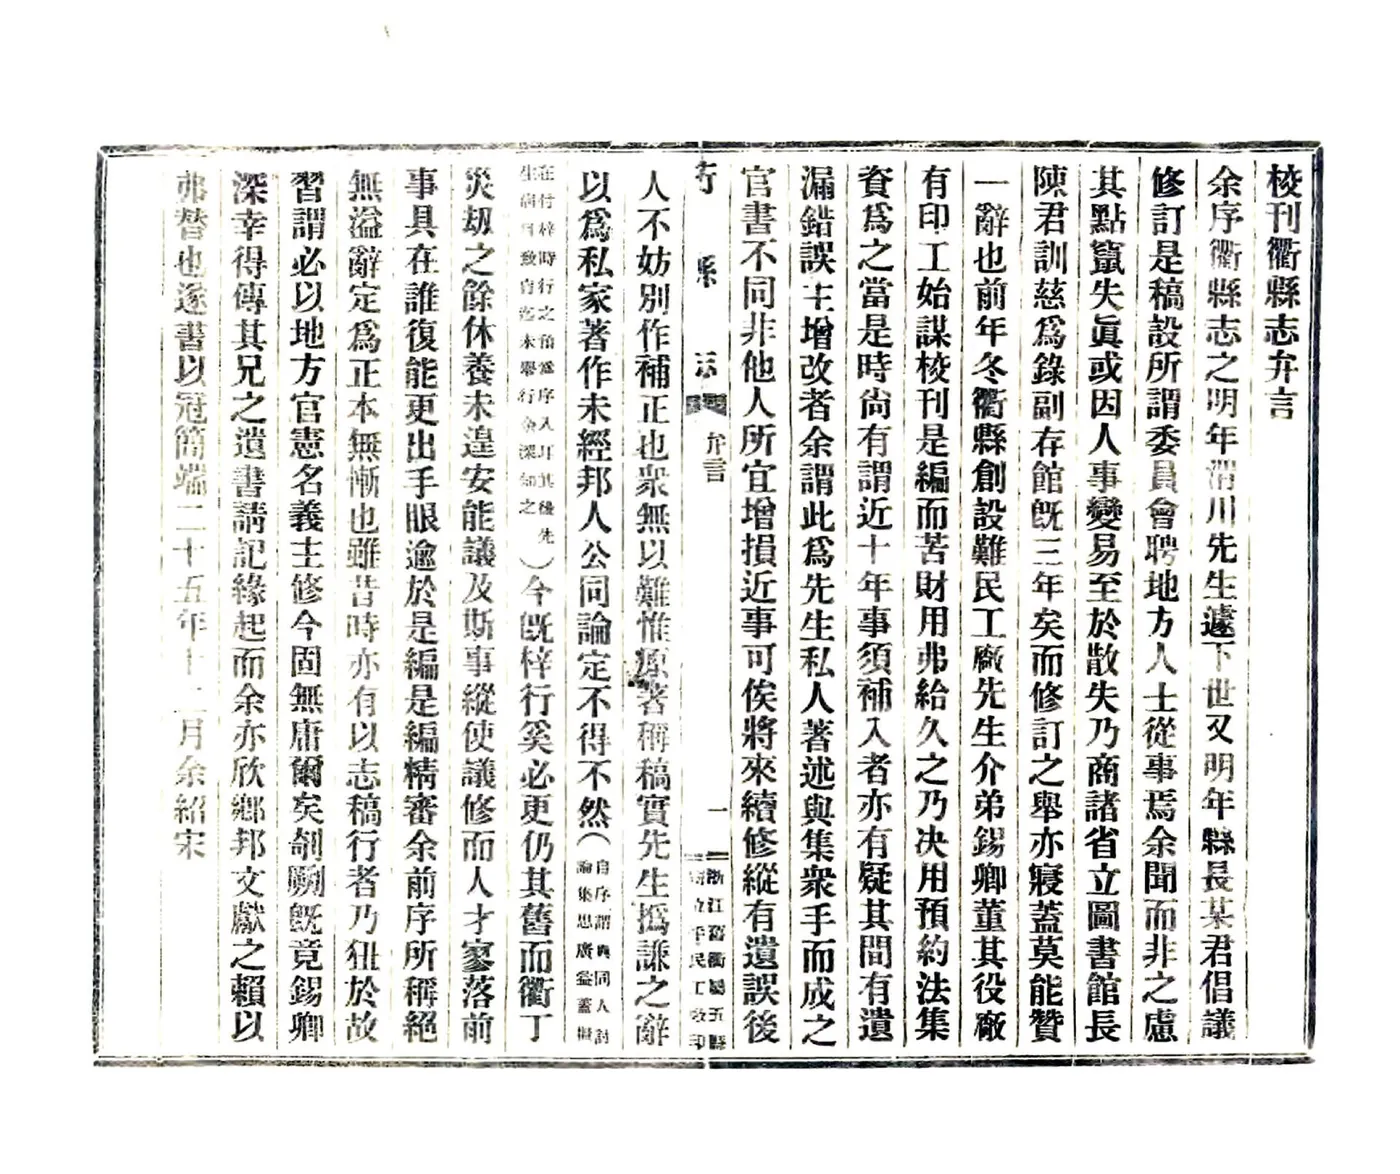 校刊衢縣志弁言
余序衢縣志之明年渭川先生遽下世又明年縣長某君倡議
修訂是稿設所謂委員會聘地方人士從事焉余聞而非之慮
其點竄失眞或因人事變易至於散失乃商諸省立圖書館長
陳君訓慈爲錄副存館旣三年矣而修訂之舉亦寢蓋莫能贊
一辭也前年冬衢縣創設難民工廠先生介弟錫卿董其役廠
有印工始謀校刊是編而苦財用弗給久之乃決用預約法集
資爲之當是時尙有謂近十年事須補入者亦有疑其間有遺
漏錯誤主增改者余謂此爲先生私人著述與集衆手而成之
官書不同非他人所宜增損近事可俟將來續修縱有遺誤後
縣志
弁言
一
浙江舊衢屬五縣
人不妨別作補正也衆無以難惟原著稱稿實先生撝謙之辭
以爲私家著作未經邦人公同論定不得不然（自序謂與同人討
論集思廣益蓋擬
在付梓時行之預爲序入耳其後先
生病自致育迄未舉行余深知之）今旣梓行奚必更仍其舊而衢丁
災劫之餘休養未遑安能議及斯事縱使議修而人才寥落前
事具在誰復能更出手眼逾於是編是編精審余前序所稱絕
無溢辭定爲正本無慚也雖昔時亦有以志稿行者乃狃於故
習謂必以地方官憲名義主修今固無庸爾矣剞劂旣竟錫卿
深幸得傳其兄之遺書請記緣起而余亦欣鄕邦文獻之賴以
弗替也遂書以冠簡端二十五年十二月余紹宋